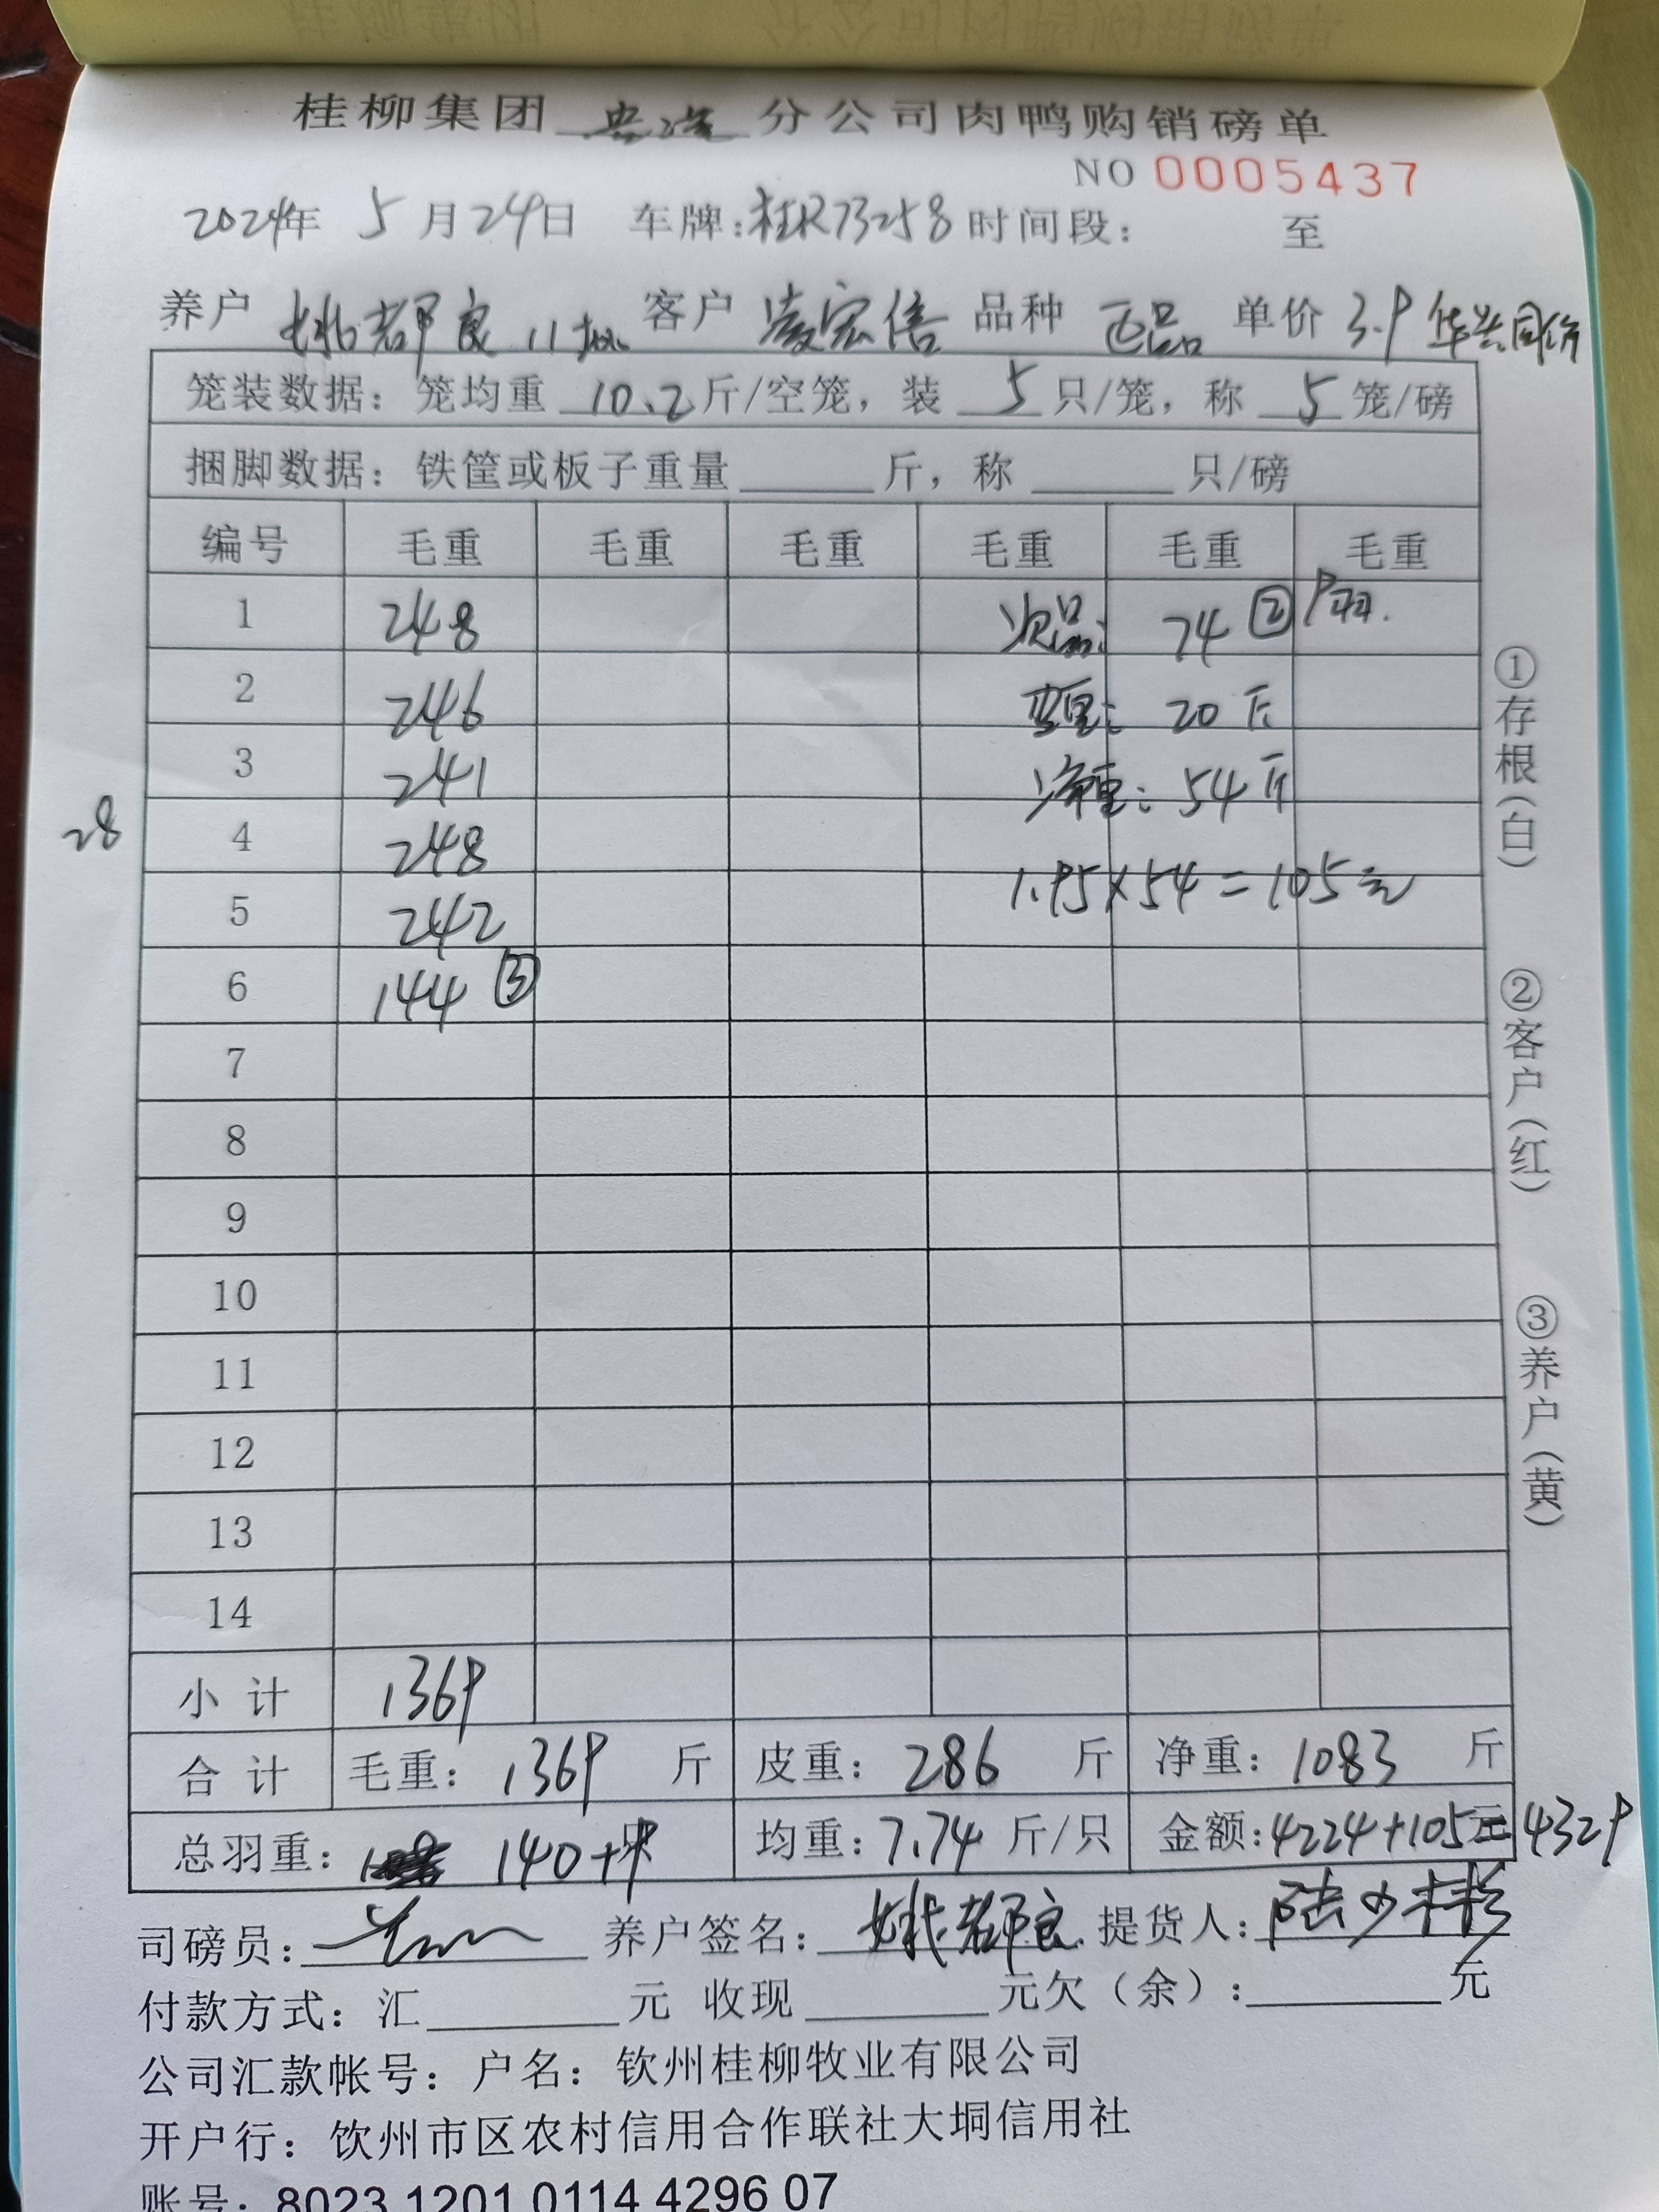 桂柳集团 分公司肉鸭购销磅单
NO 0005437
2024年 5月24日 车牌:桂R73258 时间段: 至
养户 姚都良 11批 客户 凌宏信 品种 正品 单价 3.9
笼装数据: 笼均重 10.2斤/空笼, 装 5 只/笼, 称 5 笼/磅
捆脚数据: 铁筐或板子重量 斤, 称 只/磅
编号 毛重 毛重 毛重 毛重 毛重 毛重
1 248 次品: 74 ② 9羽.
2 246 皮重: 20斤
3 241 净重: 54斤
28
4 248
1.95×54=105元
5 242
6 144 ③
7
8
9
10
11
12
13
14
小计 1369
合计 毛重: 1369 斤 皮重: 286 斤 净重: 1083 斤
总羽重: 140+9只 均重: 7.74 斤/只 金额:4224+105元=4329
司磅员: 养户签名: 姚都良 提货人: 陆少彬
付款方式: 汇 元 收现 元欠(余): 元
公司汇款帐号: 户名: 钦州桂柳牧业有限公司
开户行: 钦州市区农村信用合作联社大垌信用社
账号: 8023 1201 0114 4296 07
①存根(白)
②客户(红)
③养户(黄)